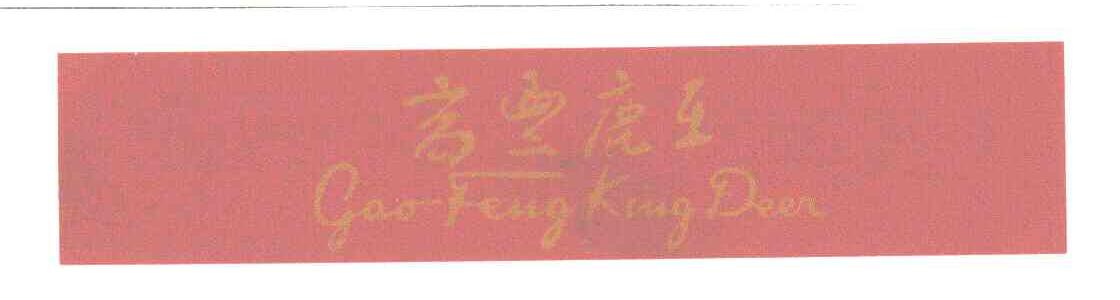 高豐鹿王
Gao-Feng King Deer